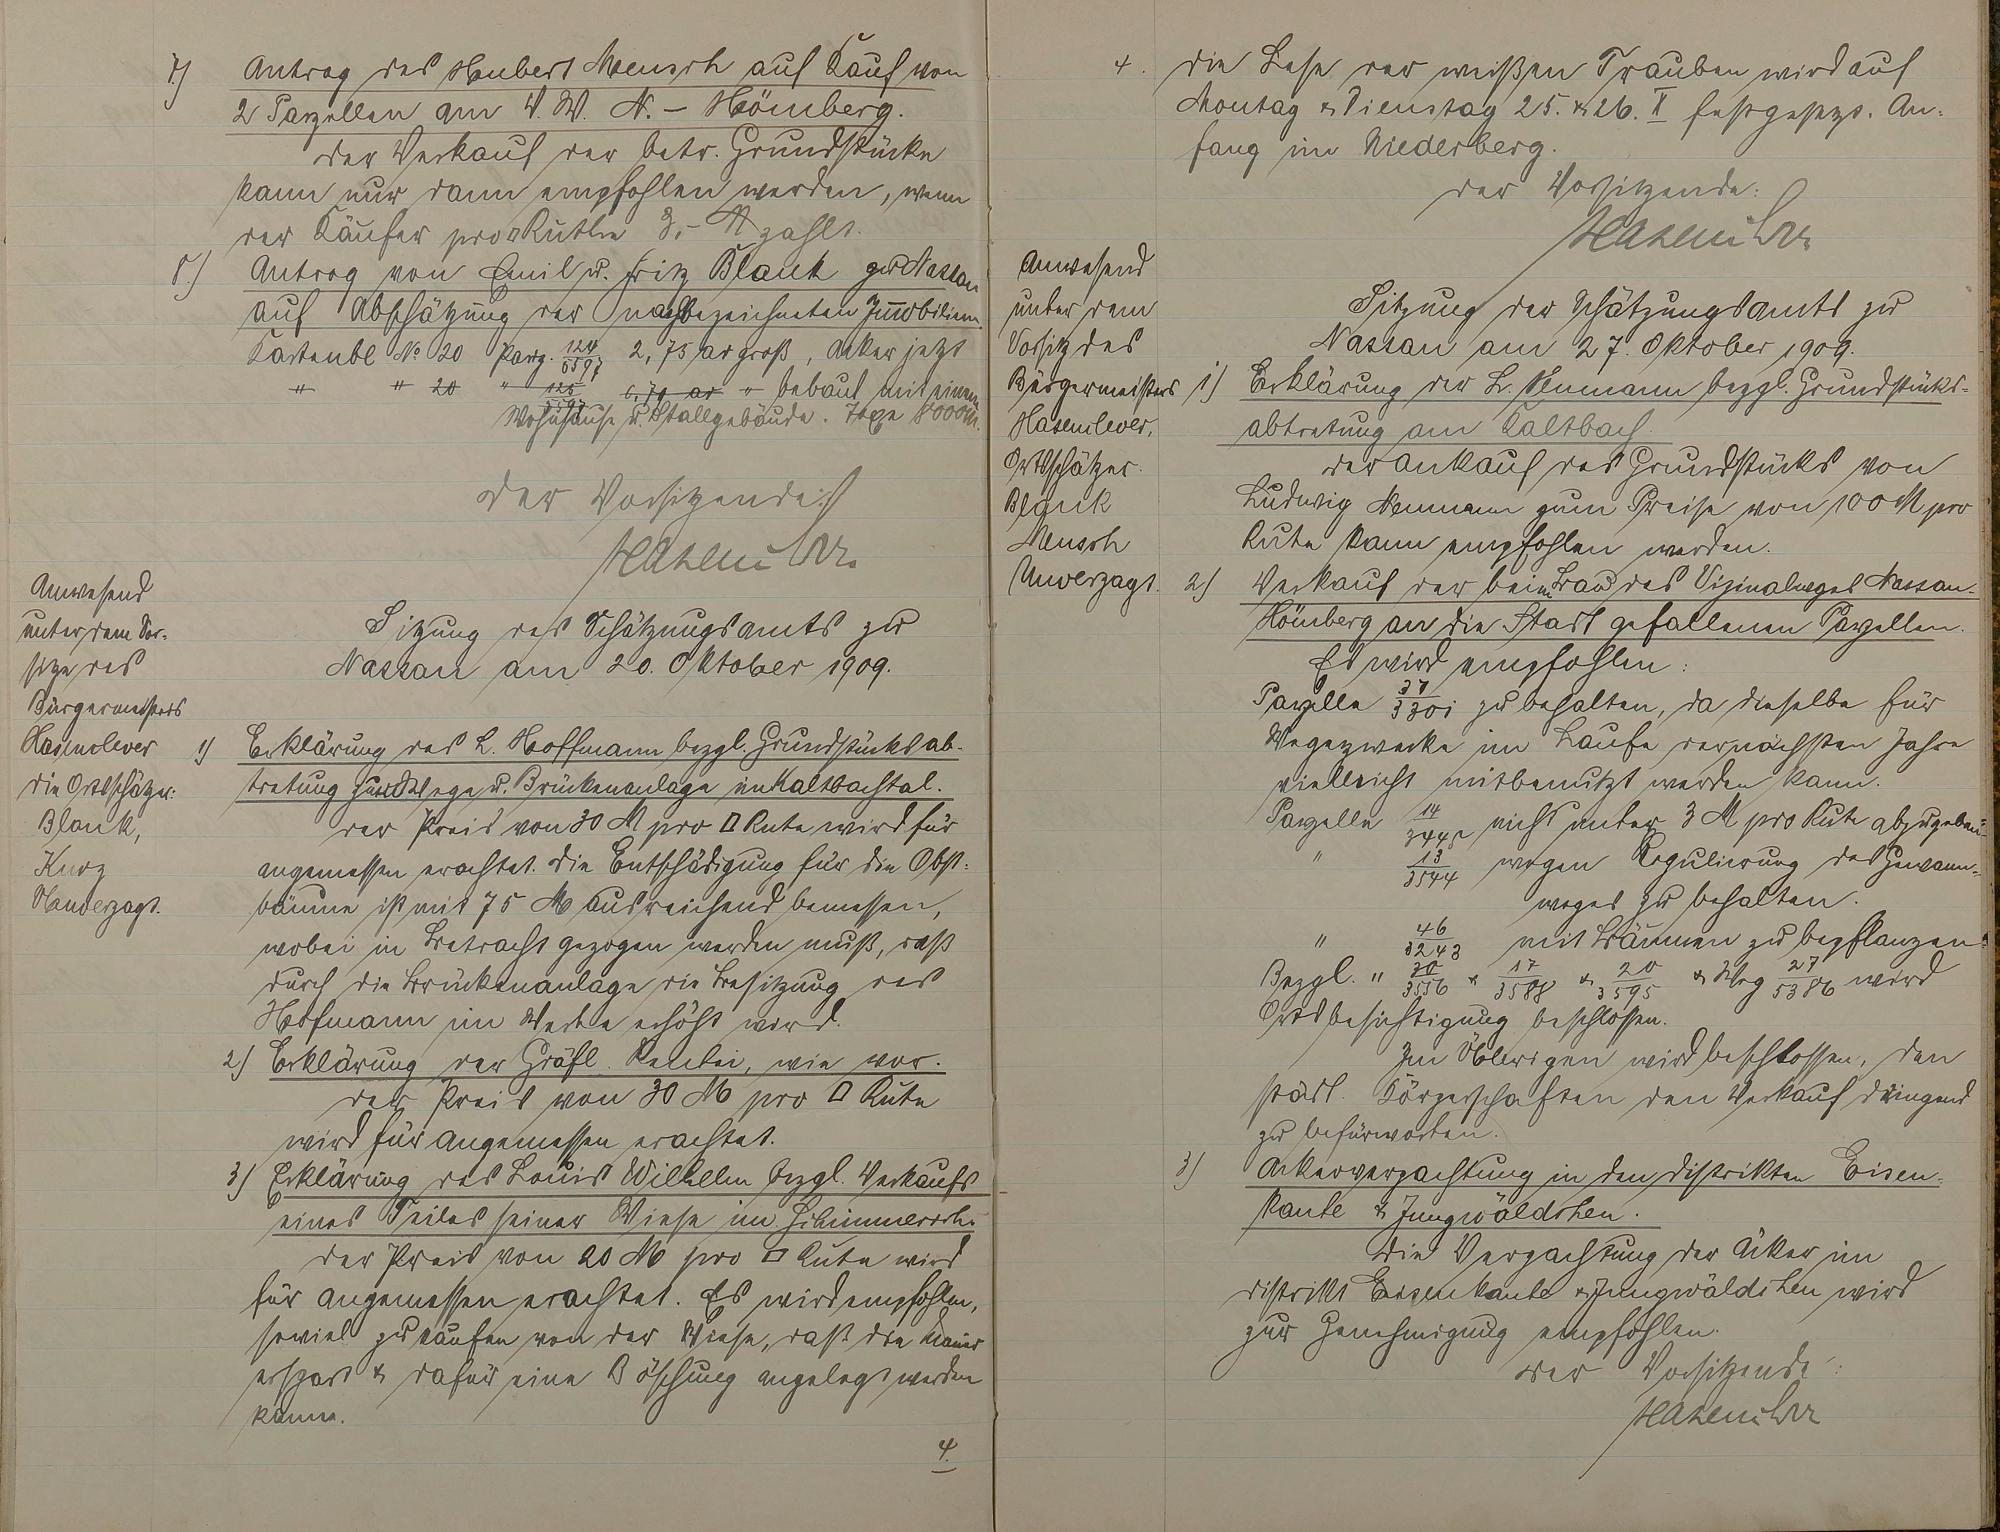 7) Antrag des Hubert Mensch auf Kauf von
2 Parzellen am V. W. N. - Hömberg.
Der Verkauf der betr. Grundstücke
kann nur dann empfohlen werden, wenn
der Käufer pro □ Ruthe 3,- M zahlt.
8.) Antrag von Emil u. Fritz Blank zu Nassau
auf Abschätzung der nachbezeichneten Immobilien.
Kartenbl. No 20 Parz. 124/ 2,75 ar groß, Acker jetzt
" " 20 " 125/ ar " bebaut mit einem
Wohnhause u. Stallgebäude. Taxe 8000 M.
Der Vorsitzende:
Hasenclever.
Anwesend
unter dem Vor-
sitze des
Bürgermeisters
Hasenclever
die Ortsschätzer:
Blank,
Kurz
Unverzagt.
Sitzung des Schätzungsamts zu
Nassau am 20. Oktober 1909.
1) Erklärung des L. Hoffmann bezgl. Grundstücksab-
tretung zur Wege u. Brückenanlage im Kaltbachtal.
Der Preis von 30 M pro □ Rute wird für
angemessen erachtet. Die Entschädigung für die Obst-
bäume ist mit 75 M ausreichend bemessen,
wobei in Betracht gezogen werden muß, daß
durch die Brückenanlage die Besitzung des
Hofmann im Werte erhöht wird.
2) Erklärung der Gräfl. Rentei, wie vor.
Der Preis von 30 M pro □ Rute
wird für angemessen erachtet.
3) Erklärung des Louis Wilhelm bezgl. Verkaufs
eines Teiles seiner Wiese im
Der Preis von 20 M pro □ Rute wird
für angemessen erachtet. Es wird empfohlen,
soviel zu kaufen von der Wiese, daß die Mauer
erspart & dafür eine Böschung angelegt werden
kann.
4.
4. Die Lese der weißen Trauben wird auf
Montag & Dienstag 25. & 26. X festgesetzt. An-
fang im Niederberg.
Der Vorsitzende:
Hasenclever
Anwesend
unter dem
Vorsitz des
Bürgermeisters
Hasenclever,
Ortsschätzer.
Blank
Mensch
Unverzagt.
Sitzung des Schätzungsamts zu
Nassau am 27. Oktober 1909.
1) Erklärung des L. Neumann bezgl. Grundstücks-
abtretung am Kaltbach.
Der Ankauf des Grundstücks von
Ludwig Neumann zum Preise von 100 M pro
Rute kann empfohlen werden.
2) Verkauf der beim Bau des Vizinalweges Nassau-
Hömberg an die Stadt gefallenen Parzellen.
Es wird empfohlen:
Parzelle 37/3301 zu behalten, da dieselbe für
Wegezwecke im Laufe der nächsten Jahre
vielleicht mitbenutzt werden kann.
Parzelle 14/3445 nicht unter 3 M pro Rute abzugeben.
" 13/3544 wegen Regulierung des Gewann-
weges zu behalten.
" 46/3243 mit Bäumen zu bepflanzen.
Bezgl. " 30/3556 & 17/3588 & 20/3595 & Weg 27/5386 wird
Ortsbesichtigung beschlossen.
Im Übrigen wird beschlossen, den
städt. Körperschaften den Verkauf dringend
zu befürworten.
3) Ackerverpachtung in den Distrikten Eisen-
kaute & Jungwäldchen.
Die Verpachtung der Äcker im
Distrikt Eisenkaute & Jungwäldchen wird
zur Genehmigung empfohlen.
Der Vorsitzende:
Hasenclever